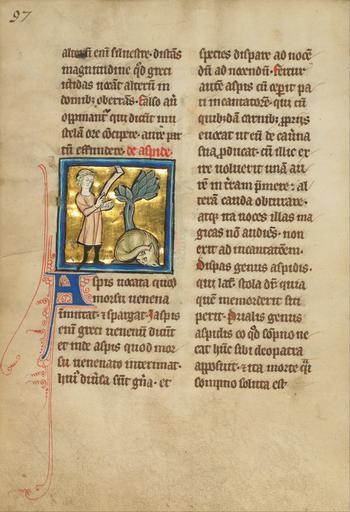 97
alterū em̄ siluestre · distās
magnitudine qd̄ greci
ictidas uocāt alterū in
domib; oberrās. falso aut̄
oppinant̄ qui dicūt mu
stelā ore cōcipere · aure par
tū effundere. de aspide.
Aspis uocata quod
morsu uenena
īmittat ⁊ spargat · Iaspis
enī greci uenenū dicūt
et inde aspis quod mor
su uenenato interimat ·
huiꝰ diu̾sa sūt gn̄a · et
species dispare ad nocē
dū ad nocendū · fertur
autē aspis cū cep̄it pa
ti incantatorē · qui eū
quibusdā carnib; ꝓpriis
euocat ut eū de cau̾na
sua ꝓducat · cū illic ex
ire noluerit unā au
rē in t̄ram p̄mere · al
terā cauda obturare ·
atq; ita uoces illas ma
gicas nō audiēs · non
exit ad incantatōem ·
Dispas genus aspidis ·
qui lat̄ · stola dr̄ · quia
quē memorderit siti
perit · Pualis genus
aspidis eo qd̄ sopno ne
cat hūc sibi cleopatra
apposuit · ⁊ ita morte q̄si
sompno soluta est